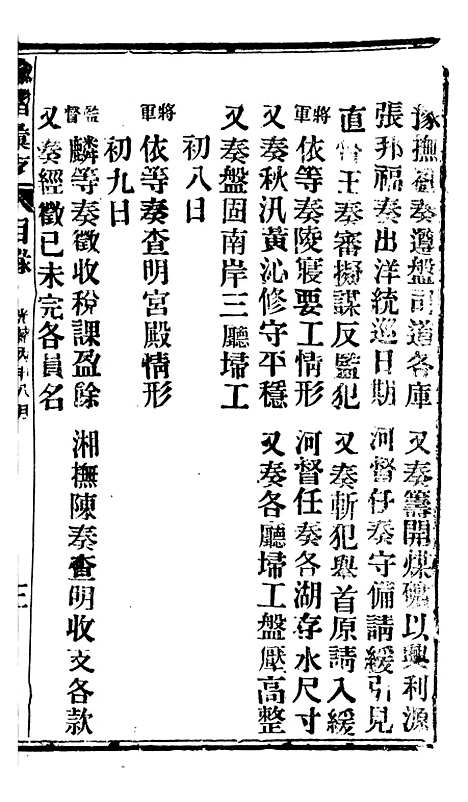 豫撫劉奏遵盤司道各庫　又奏籌開煤礦以興利源
張邦福奏出洋統巡日期　河督任奏守備請緩引見
直督王奏審擬謀反監犯　又奏斬犯舉首原請入緩
將軍依等奏陵寢要工情形　河督任奏各湖存水尺寸
又奏秋汛黃沁修守平穩　又奏各廳埽工盤壓高整
又奏盤固南岸三廳埽工
初八日
將軍依等奏查明宮殿情形
初九日
監督麟等奏徵收稅課盈餘　湘撫陳奏查明收支各款
又奏經徵已未完各員名
目錄
三